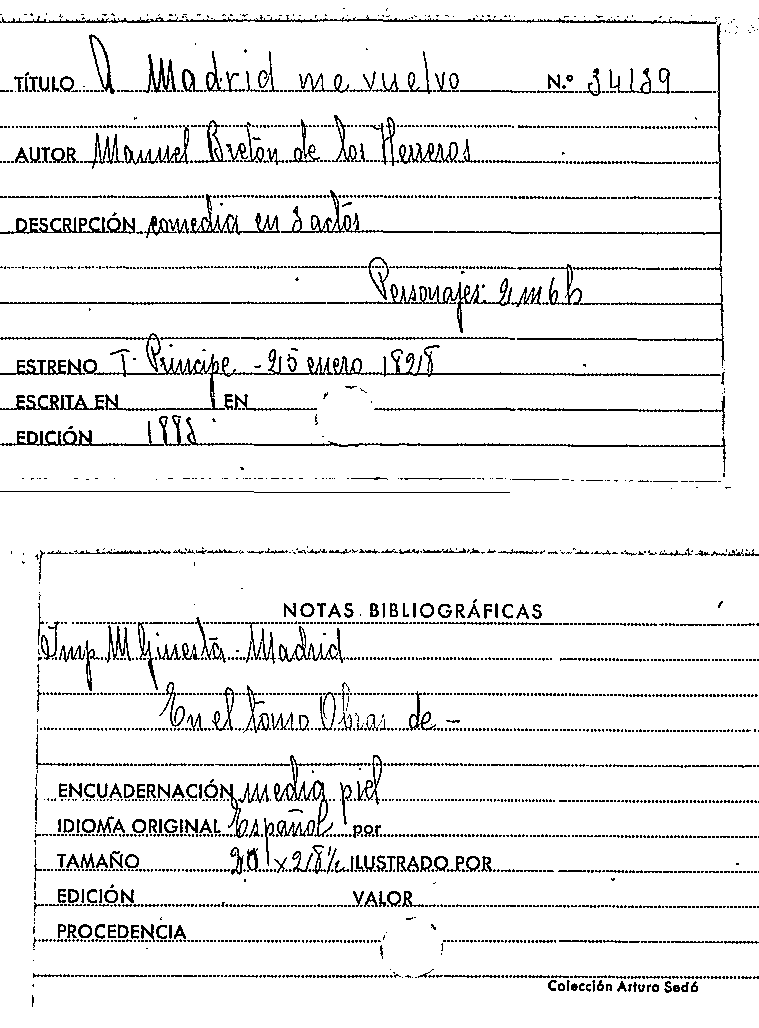 TÍTULO A Madrid me vuelvo N.º 34139
AUTOR Manuel Bretón de los Herreros
DESCRIPCIÓN comedia en 3 actos
Personajes: 2 m 6 h
ESTRENO T. Principe - 25 enero 1828
ESCRITA EN EN
EDICIÓN 1883
NOTAS BIBLIOGRÁFICAS
Imp M Ginesta - Madrid
En el tomo Obras de -
ENCUADERNACIÓN media piel
IDIOMA ORIGINAL Español por
TAMAÑO ILUSTRADO POR
EDICIÓN VALOR
PROCEDENCIA
Colección Arturo Sedó